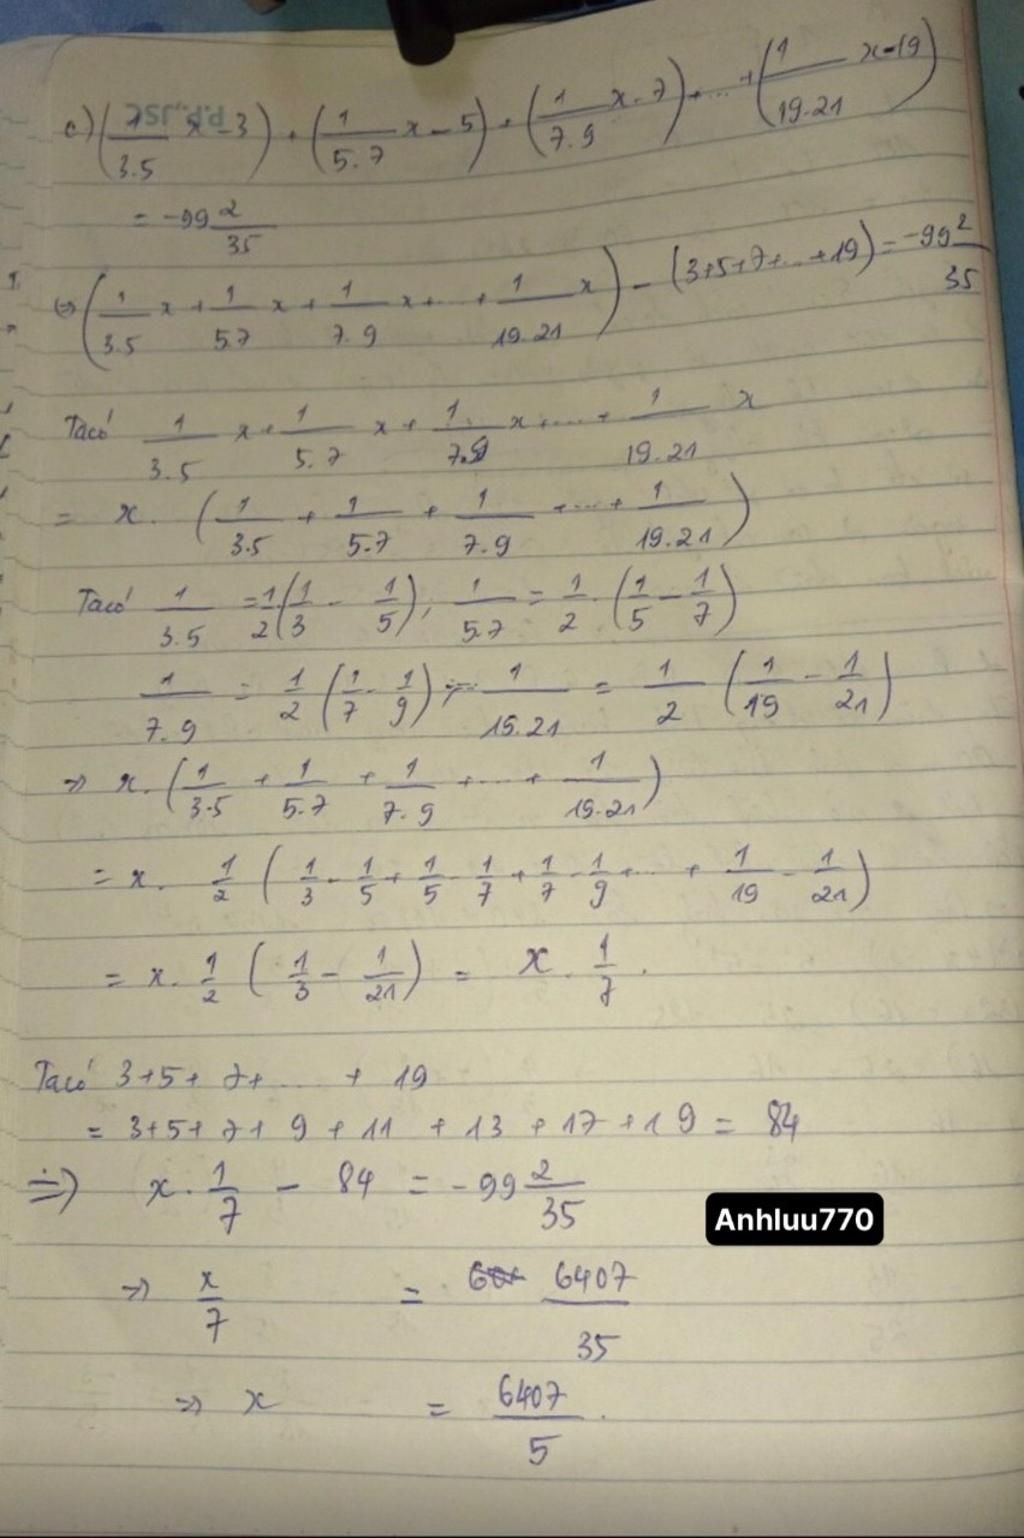 c) (1/3.5 x - 3) + (1/5.7 x - 5) + (1/7.9 x - 7) + ... + (1/19.21 x - 19)
P.P., JSC
= -99 2/35
⇔ (1/3.5 x + 1/5.7 x + 1/7.9 x + ... + 1/19.21 x) - (3+5+7+...+19) = -99 2/35
Ta có 1/3.5 x + 1/5.7 x + 1/7.9 x + ... + 1/19.21 x
= x . (1/3.5 + 1/5.7 + 1/7.9 + ... + 1/19.21)
Ta có 1/3.5 = 1/2 (1/3 - 1/5); 1/5.7 = 1/2 . (1/5 - 1/7)
1/7.9 = 1/2 (1/7 - 1/9); ... 1/19.21 = 1/2 (1/19 - 1/21)
⇒ x . (1/3.5 + 1/5.7 + 1/7.9 + ... + 1/19.21)
= x . 1/2 (1/3 - 1/5 + 1/5 - 1/7 + 1/7 - 1/9 + ... + 1/19 - 1/21)
= x . 1/2 (1/3 - 1/21) = x . 1/7 .
Ta có 3+5+7+ ... + 19
= 3+5+7+9+11+13+17+19 = 84
⇒ x . 1/7 - 84 = -99 2/35
Anhluu770
⇒ x/7 = 6407/35
⇒ x = 6407/5 .